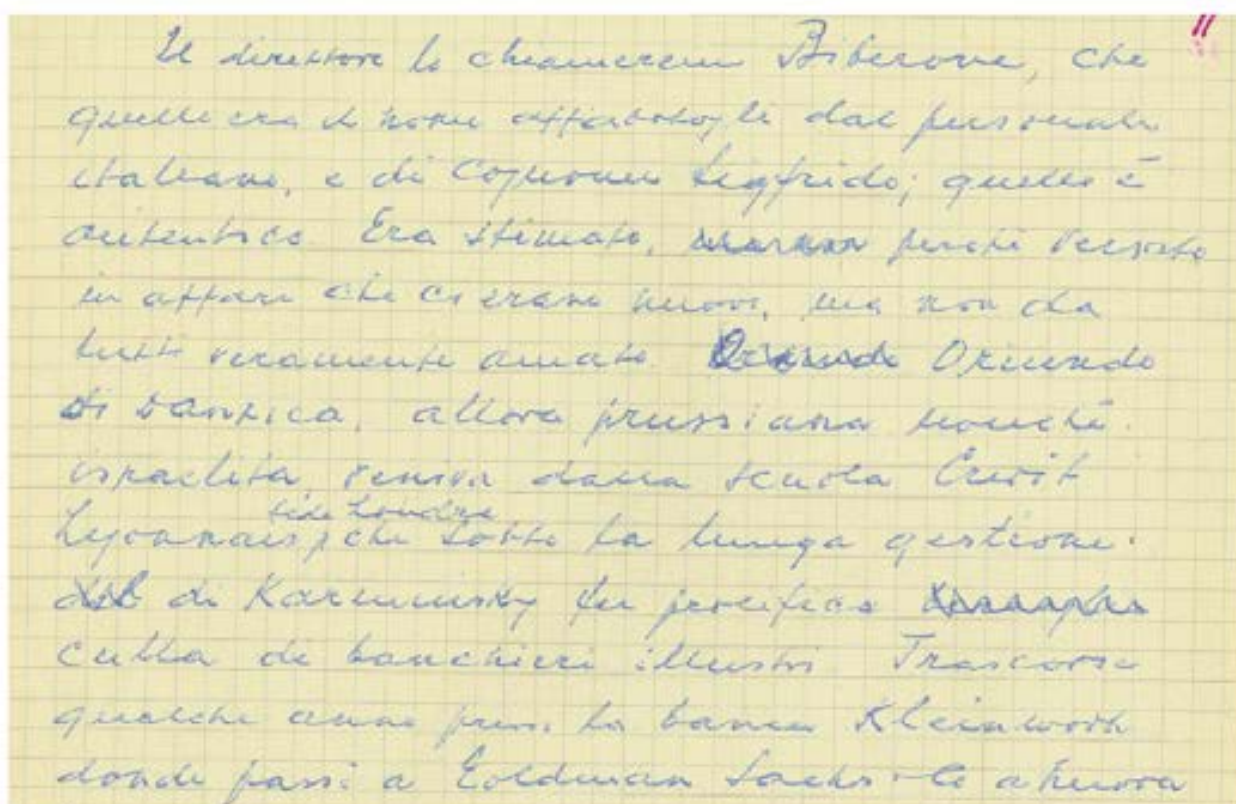 11
Il direttore lo chiameremo Biberone, che
quello era il nome affibbiatogli dal personale
italiano, e di Cognome Sigfrido; quello è
autentico. Era stimato, perché versato
in affari che ci erano nuovi, ma non da
tutti veramente amato. Oriundo
di Danzica, allora prussiana nonché
israelita, veniva dalla scuola Credit
Lyonnais, sede Londra
che sotto la lunga gestione
di Karminsky fu prolifica
culla di banchieri illustri. Trascorse
qualche anno presso la banca Kleinwort
donde passò a Goldman Sachs a Nuova